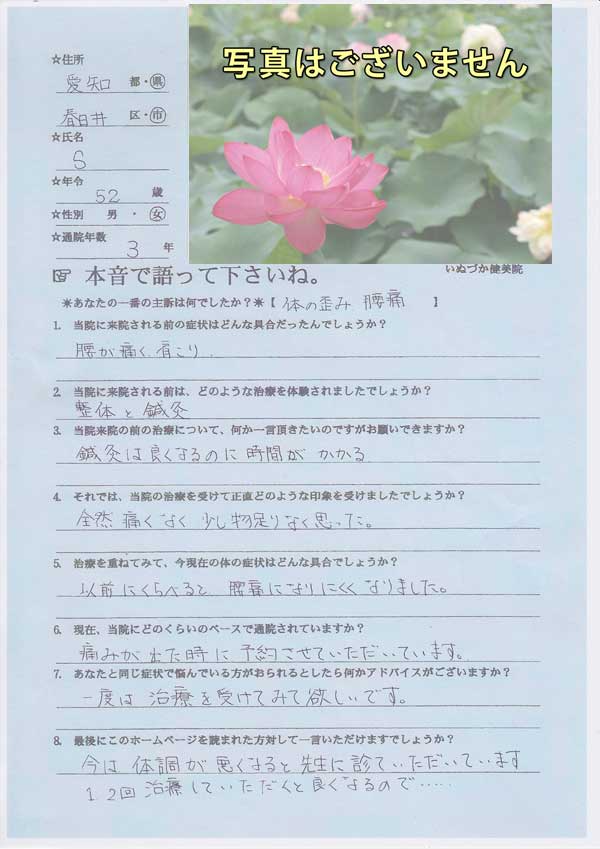 写真はございません
☆住所
愛知 都・県
春日井 区・市
☆氏名
S
☆年令
52 歳
☆性別 男・女
☆通院年数
3 年
いぬづか健美院
☞ 本音で語って下さいね。
＊あなたの一番の主訴は何でしたか？＊【 体の歪み 腰痛 】
1. 当院に来院される前の症状はどんな具合だったんでしょうか？
腰が痛く、肩こり
2. 当院に来院される前は、どのような治療を体験されましたでしょうか？
整体と鍼灸
3. 当院来院の前の治療について、何か一言頂きたいのですがお願いできますか？
鍼灸は良くなるのに時間がかかる
4. それでは、当院の治療を受けて正直どのような印象を受けましたでしょうか？
全然痛くなく少し物足りなく思った。
5. 治療を重ねてみて、今現在の体の症状はどんな具合でしょうか？
以前にくらべると腰痛になりにくくなりました。
6. 現在、当院にどのくらいのペースで通院されていますか？
痛みが出た時に予約させていただいています。
7. あなたと同じ症状で悩んでいる方がおられるとしたら何かアドバイスがございますか？
一度は治療を受けてみて欲しいです。
8. 最後にこのホームページを読まれた方対して一言いただけますでしょうか？
今は体調が悪くなると先生に診ていただいています
1、2回治療していただくと良くなるので……